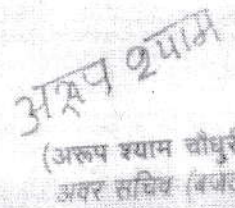 अरूप श्याम
(अरूप श्याम चौधुरी
अवर सचिव (बजट